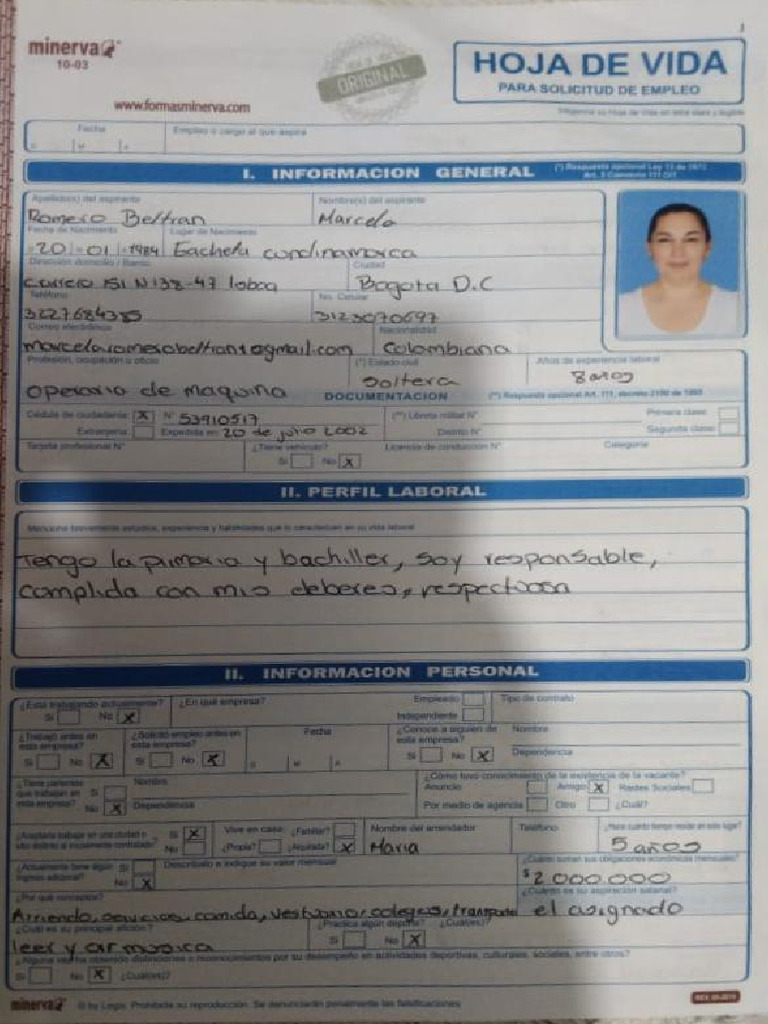 minerva
10-03
ORIGINAL
HOJA DE VIDA
PARA SOLICITUD DE EMPLEO
www.formasminerva.com
Fecha Empleo o cargo al que aspira
D M A
I. INFORMACION GENERAL
Apellido(s) del aspirante Nombre(s) del aspirante
Romero Beltran Marcela
Fecha de Nacimiento Lugar de Nacimiento
20 01 1984 Gacheta cundinamarca
Dirección domicilio / Barrio Ciudad
carrera 151 N 138-47 lisboa Bogota D.C
Teléfono No. Celular
3227684385 3123070697
Correo electrónico Nacionalidad
marcelaromerobeltran1@gmail.com Colombiana
Profesión, ocupación u oficio (*) Estado civil Años de experiencia laboral
operaria de maquina Soltera 8 años
DOCUMENTACION
Cédula de ciudadanía: X N° 53910517 (**) Libreta militar N° Primera clase:
Extranjería: Expedida en 20 de junio 2002 Distrito N° Segunda clase:
Tarjeta profesional N° ¿Tiene vehículo? Licencia de conducción N° Categoría
Si No X
II. PERFIL LABORAL
Mencione brevemente estudios, experiencia y habilidades que lo caracterizan en su vida laboral
Tengo la primaria y bachiller, soy responsable,
complida con mis deberes, respectuosa
II. INFORMACION PERSONAL
¿Está trabajando actualmente? ¿En qué empresa? Empleado Tipo de contrato
Si No X Independiente
¿Trabajó antes en esta empresa? ¿Solicitó empleo antes en esta empresa? Fecha ¿Conoce a alguien de esta empresa? Nombre
Si No X Si No X D M A Si No X Dependencia
¿Tiene parientes que trabajan en esta empresa? Si Nombre ¿Cómo tuvo conocimiento de la existencia de la vacante?
Anuncio Amigo X Redes Sociales
No X Dependencia Por medio de agencia Otro ¿Cuál?
Si X Vive en casa: ¿Familiar? Nombre del arrendador Teléfono
No ¿Propia? ¿Alquilada? X Maria 5 años
¿Actualmente tiene algún ingreso adicional? Si Descríbalo e indique su valor mensual ¿Cuánto suman sus obligaciones económicas mensuales?
No X $2000.000
¿Por qué conceptos? ¿Cuánto es su aspiración salarial?
Arriendo, servicios, comida, vestuario, colegios, transporte el asignado
¿Cuál es su principal afición? ¿Practica algún deporte? ¿Cuál(es)?
leer y oir musica Si No X
¿Alguna vez ha obtenido distinciones o reconocimientos por su desempeño en actividades deportivas, culturales, sociales, entre otros?
Si No X ¿Cuál(es)?
minerva © by Legis. Prohibida su reproducción. Se denunciarán penalmente las falsificaciones